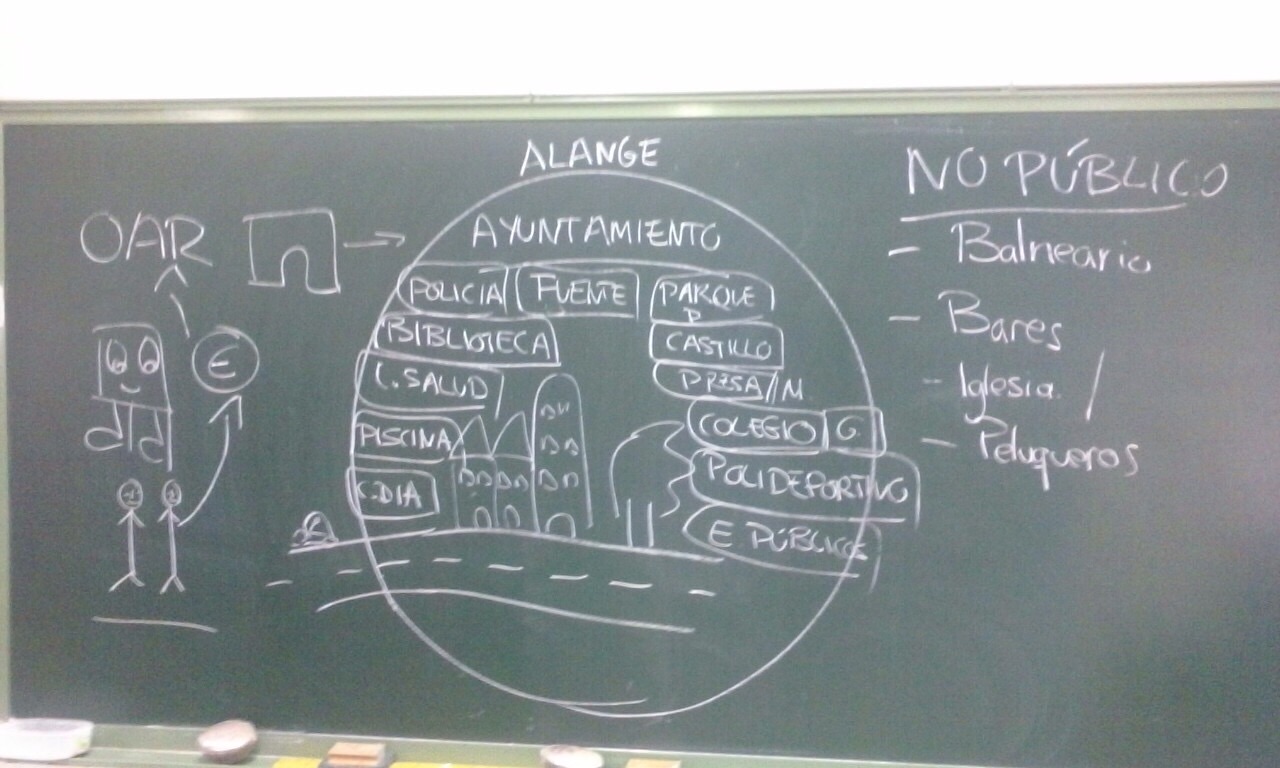 ALANGE
OAR
AYUNTAMIENTO
POLICÍA
FUENTE
PARQUE
P
BIBLIOTECA
CASTILLO
C.SALUD
PRESA/M.
PISCINA
COLEGIO
G.
C.DIA
POLIDEPORTIVO
E PÚBLICOS
€
NO PÚBLICO
- Balneario
- Bares
- Iglesia. /
- Peluqueros